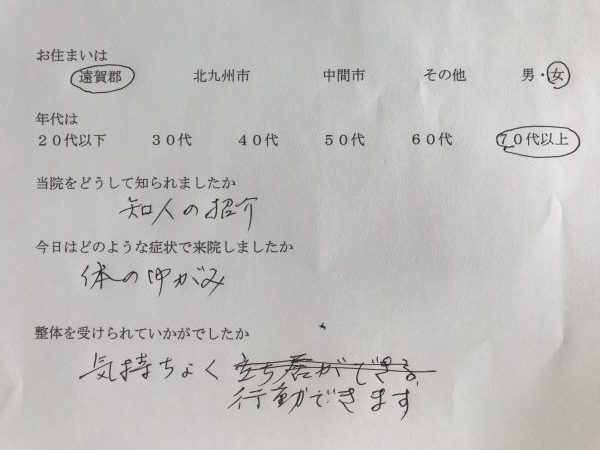 お住まいは
遠賀郡 北九州市 中間市 その他 男・女
年代は
20代以下 30代 40代 50代 60代 70代以上
当院をどうして知られましたか
知人の紹介
今日はどのような症状で来院しましたか
体のゆがみ
整体を受けられていかがでしたか
気持ちよく
行動できます